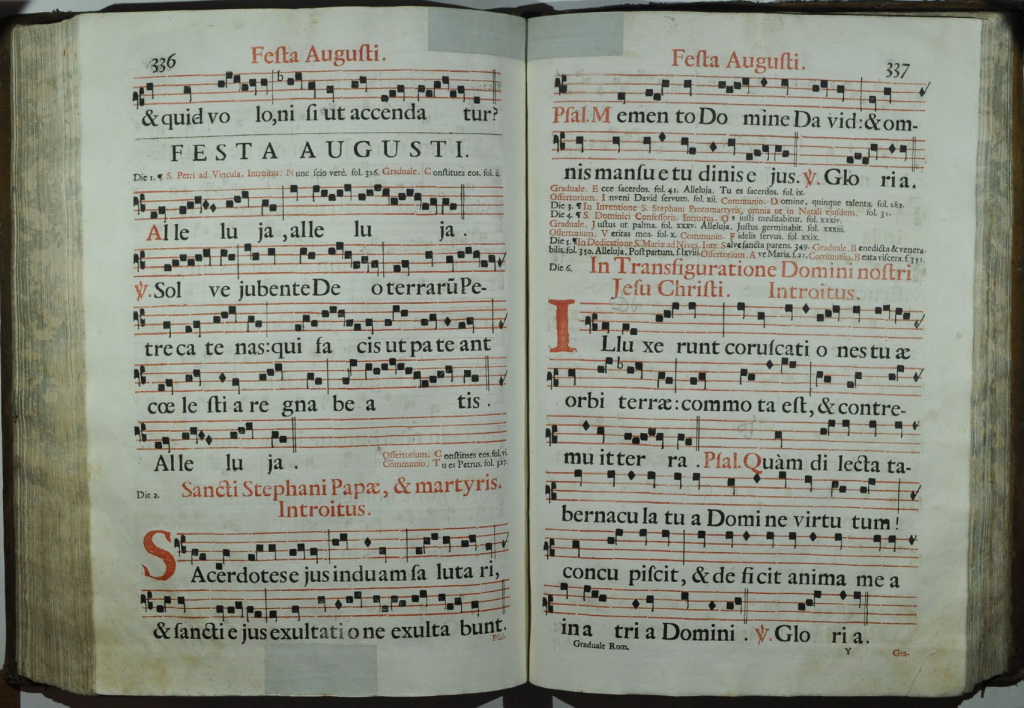 336
Feſta Auguſti.
& quid vo lo, ni ſi ut accenda tur?
FESTA AUGUSTI.
Die 1. ¶ S. Petri ad Vincula. Introitus. Nunc ſcio verè. fol. 326. Graduale. Conſtitues eos. fol. ii.
Alle lu ja, alle lu ja.
℣. Sol ve jubente De o terrarũ Pe-
tre ca te nas: qui fa cis ut pa te ant
cœ le ſti a re gna be a tis.
Alle lu ja.
Offertorium. Conſtitues eos. fol. vi.
Communio. Tu es Petrus. fol. 327.
Die 2. Sancti Stephani Papæ, & martyris.
Introitus.
Sacerdotes e jus induam ſa luta ri,
& ſancti e jus exultati o ne exulta bunt.
Pſal.
Feſta Auguſti.
337
Pſal. Memen to Do mine Da vid: & om-
nis manſue tu dinis e jus. ℣. Glo ri a.
Graduale. Ecce ſacerdos. fol. 41. Alleluja. Tu es ſacerdos. fol. ix.
Offertorium. Inveni David ſervum. fol. xii. Communio. Domine, quinque talenta. fol. 282.
Die 3. ¶ In Inventione S. Stephani Protomartyris, omnia ut in Natali ejuſdem. fol. 31.
Die 4. ¶ S. Dominici Confeſſoris. Introitus. Os juſti meditabitur. fol. xxxiv.
Graduale. Juſtus ut palma. fol. xxxv. Alleluja. Juſtus germinabit. fol. xxxiii.
Offertorium. Veritas mea. fol. x. Communio. Fidelis ſervus. fol. xxix.
Die 5. ¶ In Dedicatione S. Mariæ ad Nives. Intr. Salve ſancta parens. 349. Graduale. Benedicta & venera-
bilis. fol. 350. Alleluja. Poſt partum. f. lxviii. Offertorium. Ave Maria. f. 21. Communio. Beata viſcera. f. 351.
Die 6. In Transfiguratione Domini noſtri
Jeſu Chriſti. Introitus.
Illu xe runt coruſcati o nes tu æ
orbi terræ: commo ta eſt, & contre-
mu it ter ra. Pſal. Quàm di lecta ta-
bernacu la tu a Domi ne virtu tum!
concu piſcit, & de ficit anima me a
in a tri a Domini. ℣. Glo ri a.
Graduale Rom.
Y
Gra-